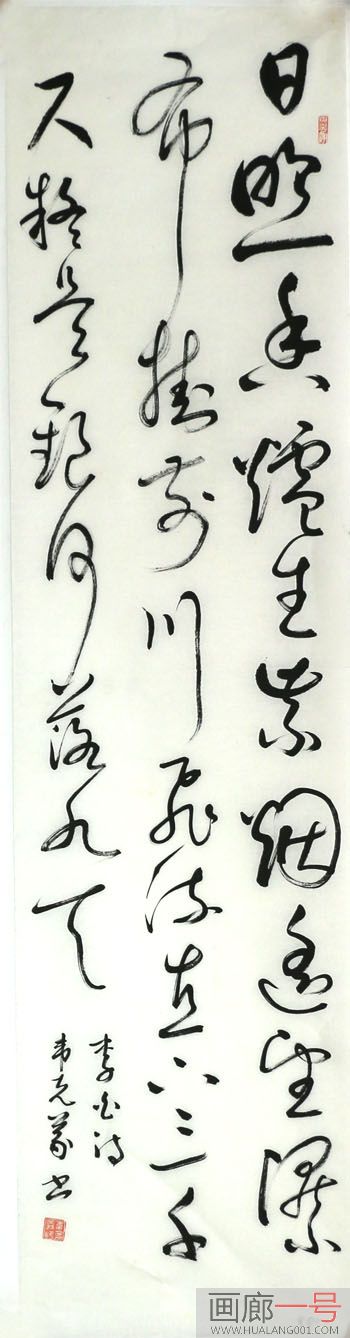 日照香爐生紫烟遥望瀑
布掛前川飛流直下三千
尺疑是銀河落九天
李白詩
韦克義书
画廊一号
WWW.HUALANG001.COM